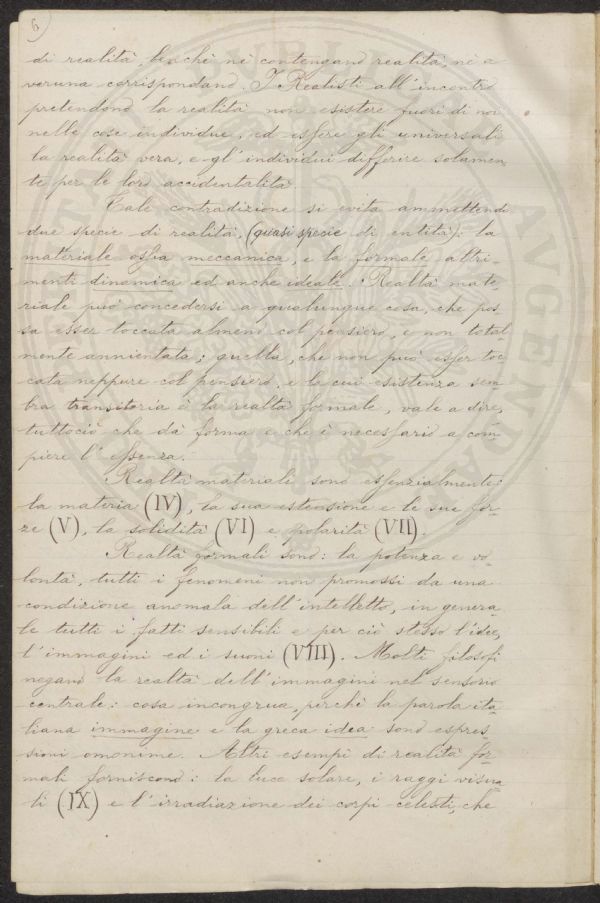 6)
di realità, benchè nè contengano realità, nè a
veruna corrispondano. I Realisti all'incontro
pretendono la realità non esistere fuori di noi
nelle cose individue, ed essere gli universali
la realità vera, e gl'individui differire solamen
te per le loro accidentalità.
Tale contradizione si evita ammettendo
due specie di realità, (quasi specie di entità): la
materiale ossia meccanica, e la formale altri-
menti dinamica ed anche ideale. Realtà mate
riale può concedersi a qualunque cosa, che pos
sa esser toccata almeno col pensiero, e non total
mente annientata; quella, che non può esser toc
cata neppure col pensiero, e la cui esistenza sem
bra transitoria è la realtà formale, vale a dire,
tuttociò che dà forma e che è necessario a com
piere l'essenza.
Realtà materiali sono essenzialmente:
la materia (IV), la sua estensione e le sue for
ze (V), la solidità (VI) e polarità (VII).
Realtà formali sono: la potenza e vo
lontà, tutti i fenomeni non promossi da una
condizione anomala dell'intelletto, in genera
le tutti i fatti sensibili e per ciò stesso l'idee,
l'immagini ed i suoni (VIII). Molti filosofi
negano la realtà dell'immagini nel sensorio
centrale: cosa incongrua, perchè la parola ita
liana immagine e la greca idea sono espres
sioni omonime. Altri esempi di realità for
mali forniscono: la luce solare, i raggi visua
li (IX) e l'irradiazione dei corpi celesti, che